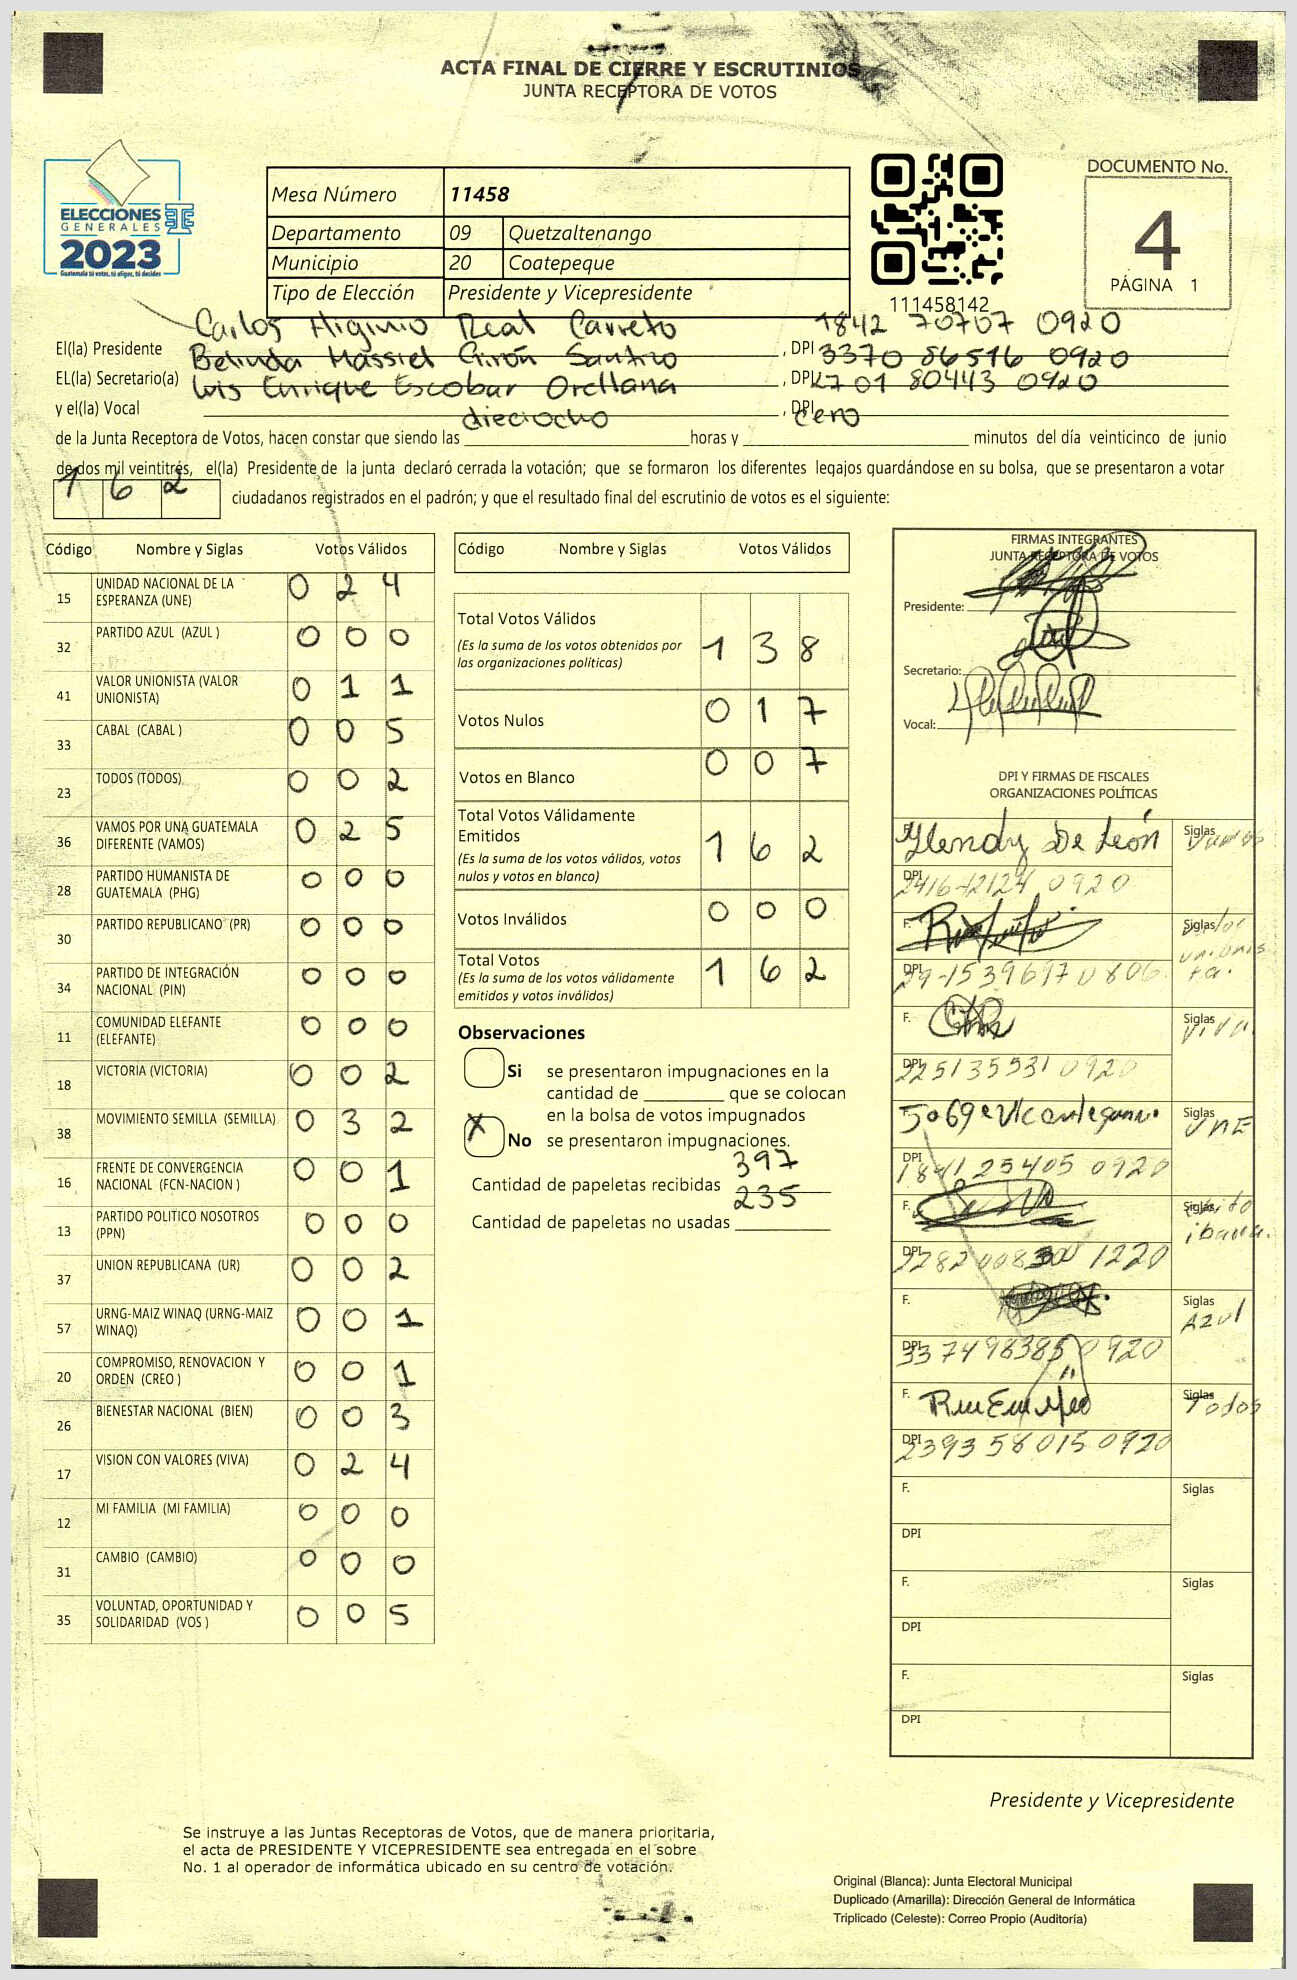 ACTA FINAL DE CIERRE Y ESCRUTINIOS
JUNTA RECEPTORA DE VOTOS
ELECCIONES
GENERALES
2023
Guatemala tú votas, tú eliges, tú decides
Mesa Número 11458
Departamento 09 Quetzaltenango
Municipio 20 Coatepeque
Tipo de Elección Presidente y Vicepresidente
111458142
DOCUMENTO No.
4
PÁGINA 1
El(la) Presidente Carlos Higinio Real Carreto , DPI 1842 70707 0920
EL(la) Secretario(a) Belinda Massiel Girón Santizo , DPI 3370 86516 0920
y el(la) Vocal Luis Enrique Escobar Orellana , DPI 2701 80443 0920
de la Junta Receptora de Votos, hacen constar que siendo las dieciocho horas y cero minutos del día veinticinco de junio
de dos mil veintitrés, el(la) Presidente de la junta declaró cerrada la votación; que se formaron los diferentes legajos guardándose en su bolsa, que se presentaron a votar
1 6 2 ciudadanos registrados en el padrón; y que el resultado final del escrutinio de votos es el siguiente:
Código Nombre y Siglas Votos Válidos
15 UNIDAD NACIONAL DE LA ESPERANZA (UNE) 0 2 4
32 PARTIDO AZUL (AZUL ) 0 0 0
41 VALOR UNIONISTA (VALOR UNIONISTA) 0 1 1
33 CABAL (CABAL ) 0 0 5
23 TODOS (TODOS) 0 0 2
36 VAMOS POR UNA GUATEMALA DIFERENTE (VAMOS) 0 2 5
28 PARTIDO HUMANISTA DE GUATEMALA (PHG) 0 0 0
30 PARTIDO REPUBLICANO (PR) 0 0 0
34 PARTIDO DE INTEGRACIÓN NACIONAL (PIN) 0 0 0
11 COMUNIDAD ELEFANTE (ELEFANTE) 0 0 0
18 VICTORIA (VICTORIA) 0 0 2
38 MOVIMIENTO SEMILLA (SEMILLA) 0 3 2
16 FRENTE DE CONVERGENCIA NACIONAL (FCN-NACION ) 0 0 1
13 PARTIDO POLITICO NOSOTROS (PPN) 0 0 0
37 UNION REPUBLICANA (UR) 0 0 2
57 URNG-MAIZ WINAQ (URNG-MAIZ WINAQ) 0 0 1
20 COMPROMISO, RENOVACION Y ORDEN (CREO ) 0 0 1
26 BIENESTAR NACIONAL (BIEN) 0 0 3
17 VISION CON VALORES (VIVA) 0 2 4
12 MI FAMILIA (MI FAMILIA) 0 0 0
31 CAMBIO (CAMBIO) 0 0 0
35 VOLUNTAD, OPORTUNIDAD Y SOLIDARIDAD (VOS ) 0 0 5
Código Nombre y Siglas Votos Válidos
Total Votos Válidos 1 3 8
(Es la suma de los votos obtenidos por
las organizaciones políticas)
Votos Nulos 0 1 7
Votos en Blanco 0 0 7
Total Votos Válidamente
Emitidos 1 6 2
(Es la suma de los votos válidos, votos
nulos y votos en blanco)
Votos Inválidos 0 0 0
Total Votos 1 6 2
(Es la suma de los votos válidamente
emitidos y votos inválidos)
Observaciones
Si se presentaron impugnaciones en la
cantidad de ________ que se colocan
en la bolsa de votos impugnados
X No se presentaron impugnaciones.
Cantidad de papeletas recibidas 397
Cantidad de papeletas no usadas 235
FIRMAS INTEGRANTES
JUNTA RECEPTORA DE VOTOS
Presidente:
Secretario:
Vocal:
DPI Y FIRMAS DE FISCALES
ORGANIZACIONES POLÍTICAS
Glendy De León Siglas
DPI 0920
F. Siglas Valor
unionis
ta.
DPI
F. Siglas Viva
DPI 2251355310920
Siglas UNE
DPI 1841 25405 0920
F. Siglas
DPI 1220
F. Siglas Azul
DPI 3374983850920
F. Siglas Todos
DPI 2393580150920
F. Siglas
DPI
F. Siglas
DPI
F. Siglas
DPI
Presidente y Vicepresidente
Se instruye a las Juntas Receptoras de Votos, que de manera prioritaria,
el acta de PRESIDENTE Y VICEPRESIDENTE sea entregada en el sobre
No. 1 al operador de informática ubicado en su centro de votación.
Original (Blanca): Junta Electoral Municipal
Duplicado (Amarilla): Dirección General de Informática
Triplicado (Celeste): Correo Propio (Auditoría)